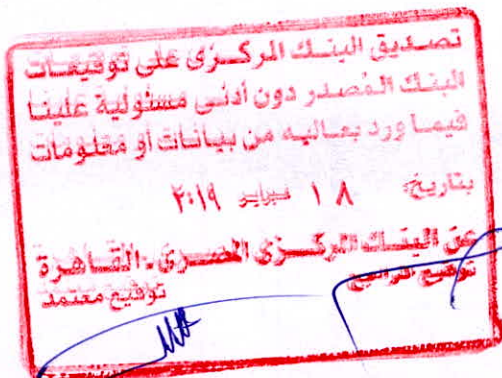 تصديق البنك المركزى على توقيعات
البنك المُصدر دون أدنى مسئولية علينا
فيما ورد بعاليه من بيانات أو معلومات
بتاريخ ١٨ فبراير ٢٠١٩
عن البنك المركزى المصرى - القاهرة
توقيع المراجع توقيع معتمد